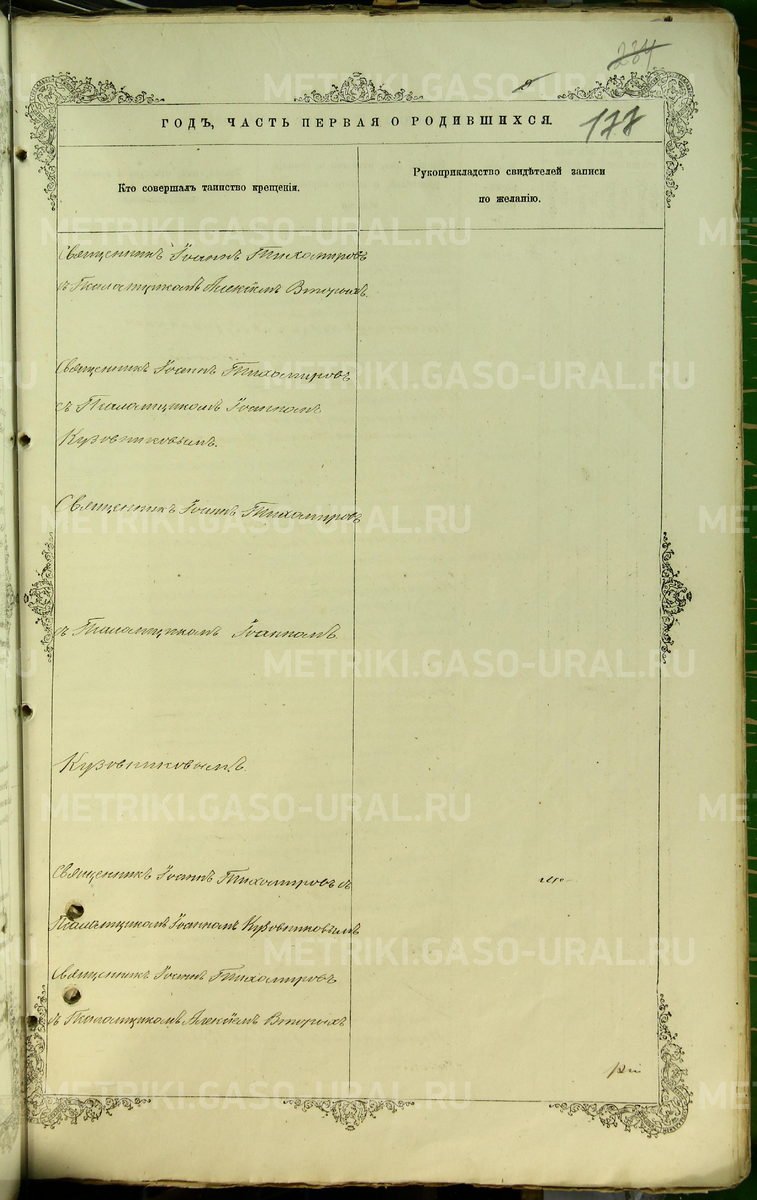 234
ГОДЪ, ЧАСТЬ ПЕРВАЯ О РОДИВШИХСЯ.
177
Кто совершалъ таинство крещенія.
Рукоприкладство свидѣтелей записи
по желанію.
Священникъ Іоаннъ Тихомировъ
съ Псаломщикомъ Алексіемъ Вторыхъ.
Священникъ Іоаннъ Тихомировъ
съ Псаломщикомъ Іоанномъ
Кузовниковымъ.
Священникъ Іоаннъ Тихомировъ
съ Псаломщикомъ Іоанномъ
Кузовниковымъ.
Священникъ Іоаннъ Тихомировъ съ
Псаломщикомъ Іоанномъ Кузовниковымъ
Священникъ Іоаннъ Тихомировъ
съ Псаломщикомъ Алексіемъ Вторыхъ
METRIKI.GASO-URAL.RU